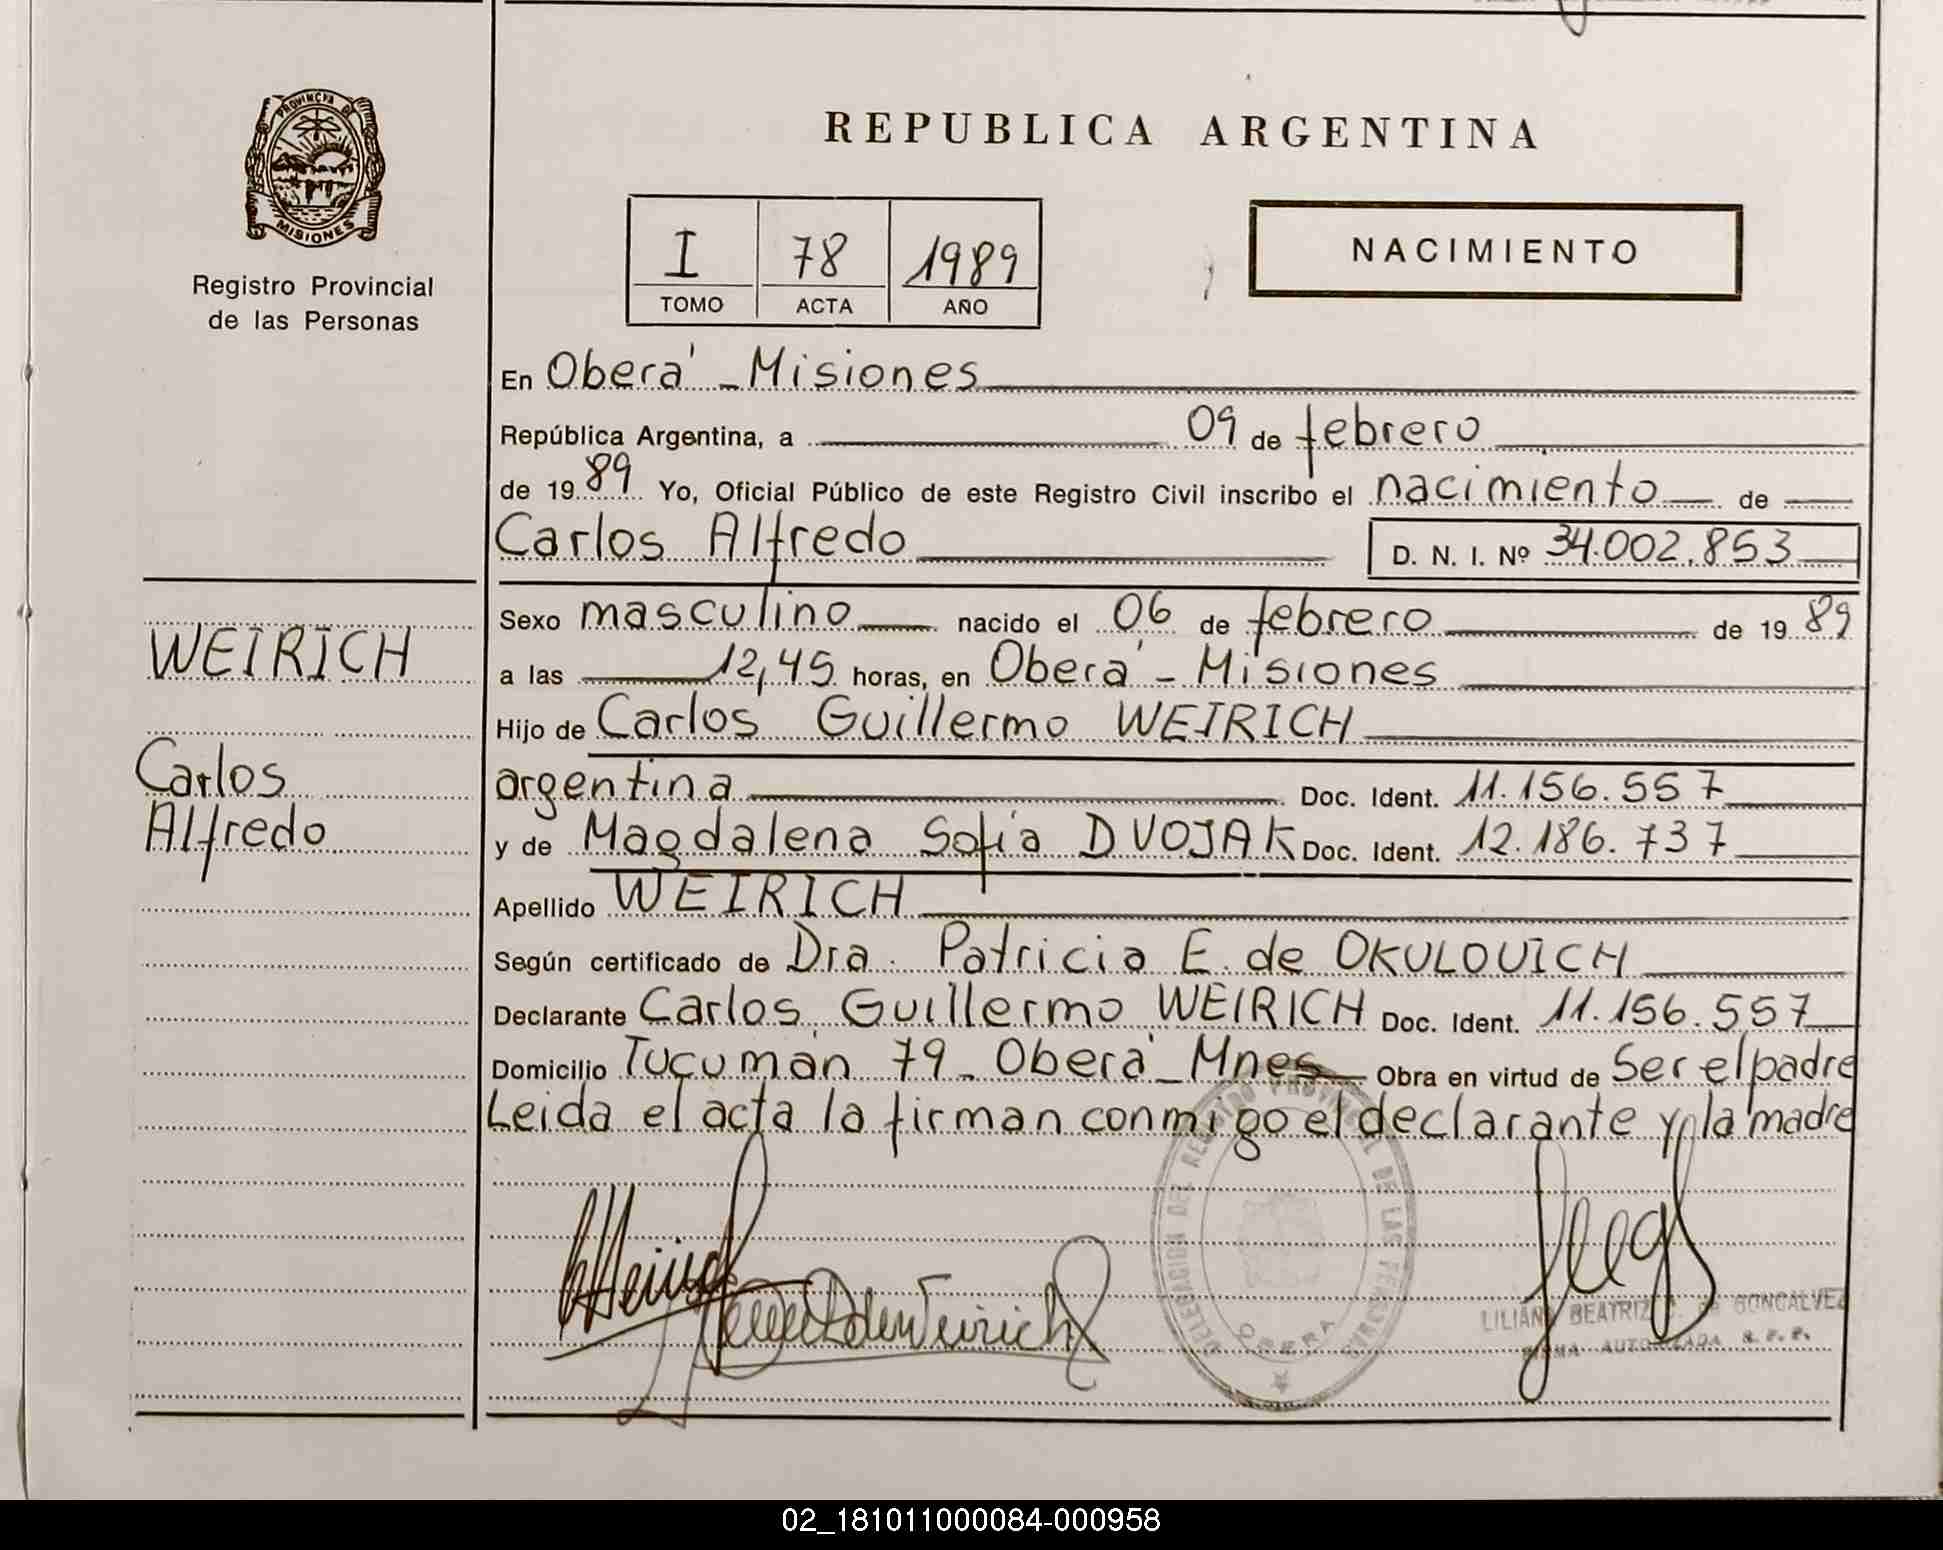 PROVINCIA DE
MISIONES
Registro Provincial
de las Personas
REPUBLICA ARGENTINA
I 78 1989
TOMO ACTA AÑO
NACIMIENTO
En Oberá - Misiones
República Argentina, a 09 de febrero
de 19 89 Yo, Oficial Público de este Registro Civil inscribo el nacimiento de
Carlos Alfredo D. N. I. Nº 34.002.853
Sexo masculino nacido el 06 de febrero de 19 89
a las 12,45 horas, en Oberá - Misiones
Hijo de Carlos Guillermo WEIRICH
argentina Doc. Ident. 11.156.557
y de Magdalena Sofía DVOJAK Doc. Ident. 12.186.737
Apellido WEIRICH
Según certificado de Dra. Patricia E. de OKULOVICH
Declarante Carlos Guillermo WEIRICH Doc. Ident. 11.156.557
Domicilio Tucumán 79 - Oberá - Mnes Obra en virtud de Ser el padre
Leida el acta la firman conmigo el declarante y la madre
WEIRICH
Carlos
Alfredo
DELEGACION DEL REGISTRO PROVINCIAL DE LAS PERSONAS
OBERA
LILIANA BEATRIZ de GONCALVEZ
FIRMA AUTORIZADA
02_181011000084-000958